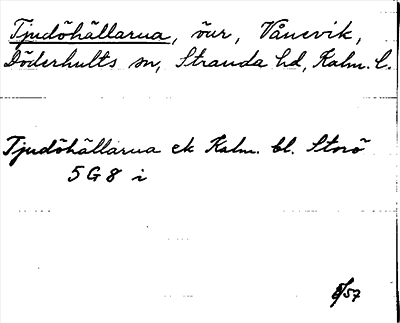 Tjudöhällarna, öar, Vånevik,
Döderhults sn, Stranda hd, Kalm. l.
Tjudöhällarna ek Kalm. bl. Storö
5 G 8 i
8/57